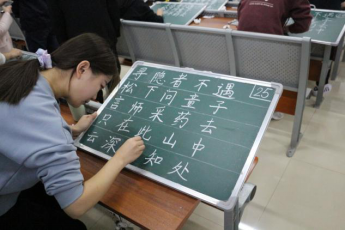 寻隐者不遇 25
松下问童子
言师采药去
只在此山中
云深知处